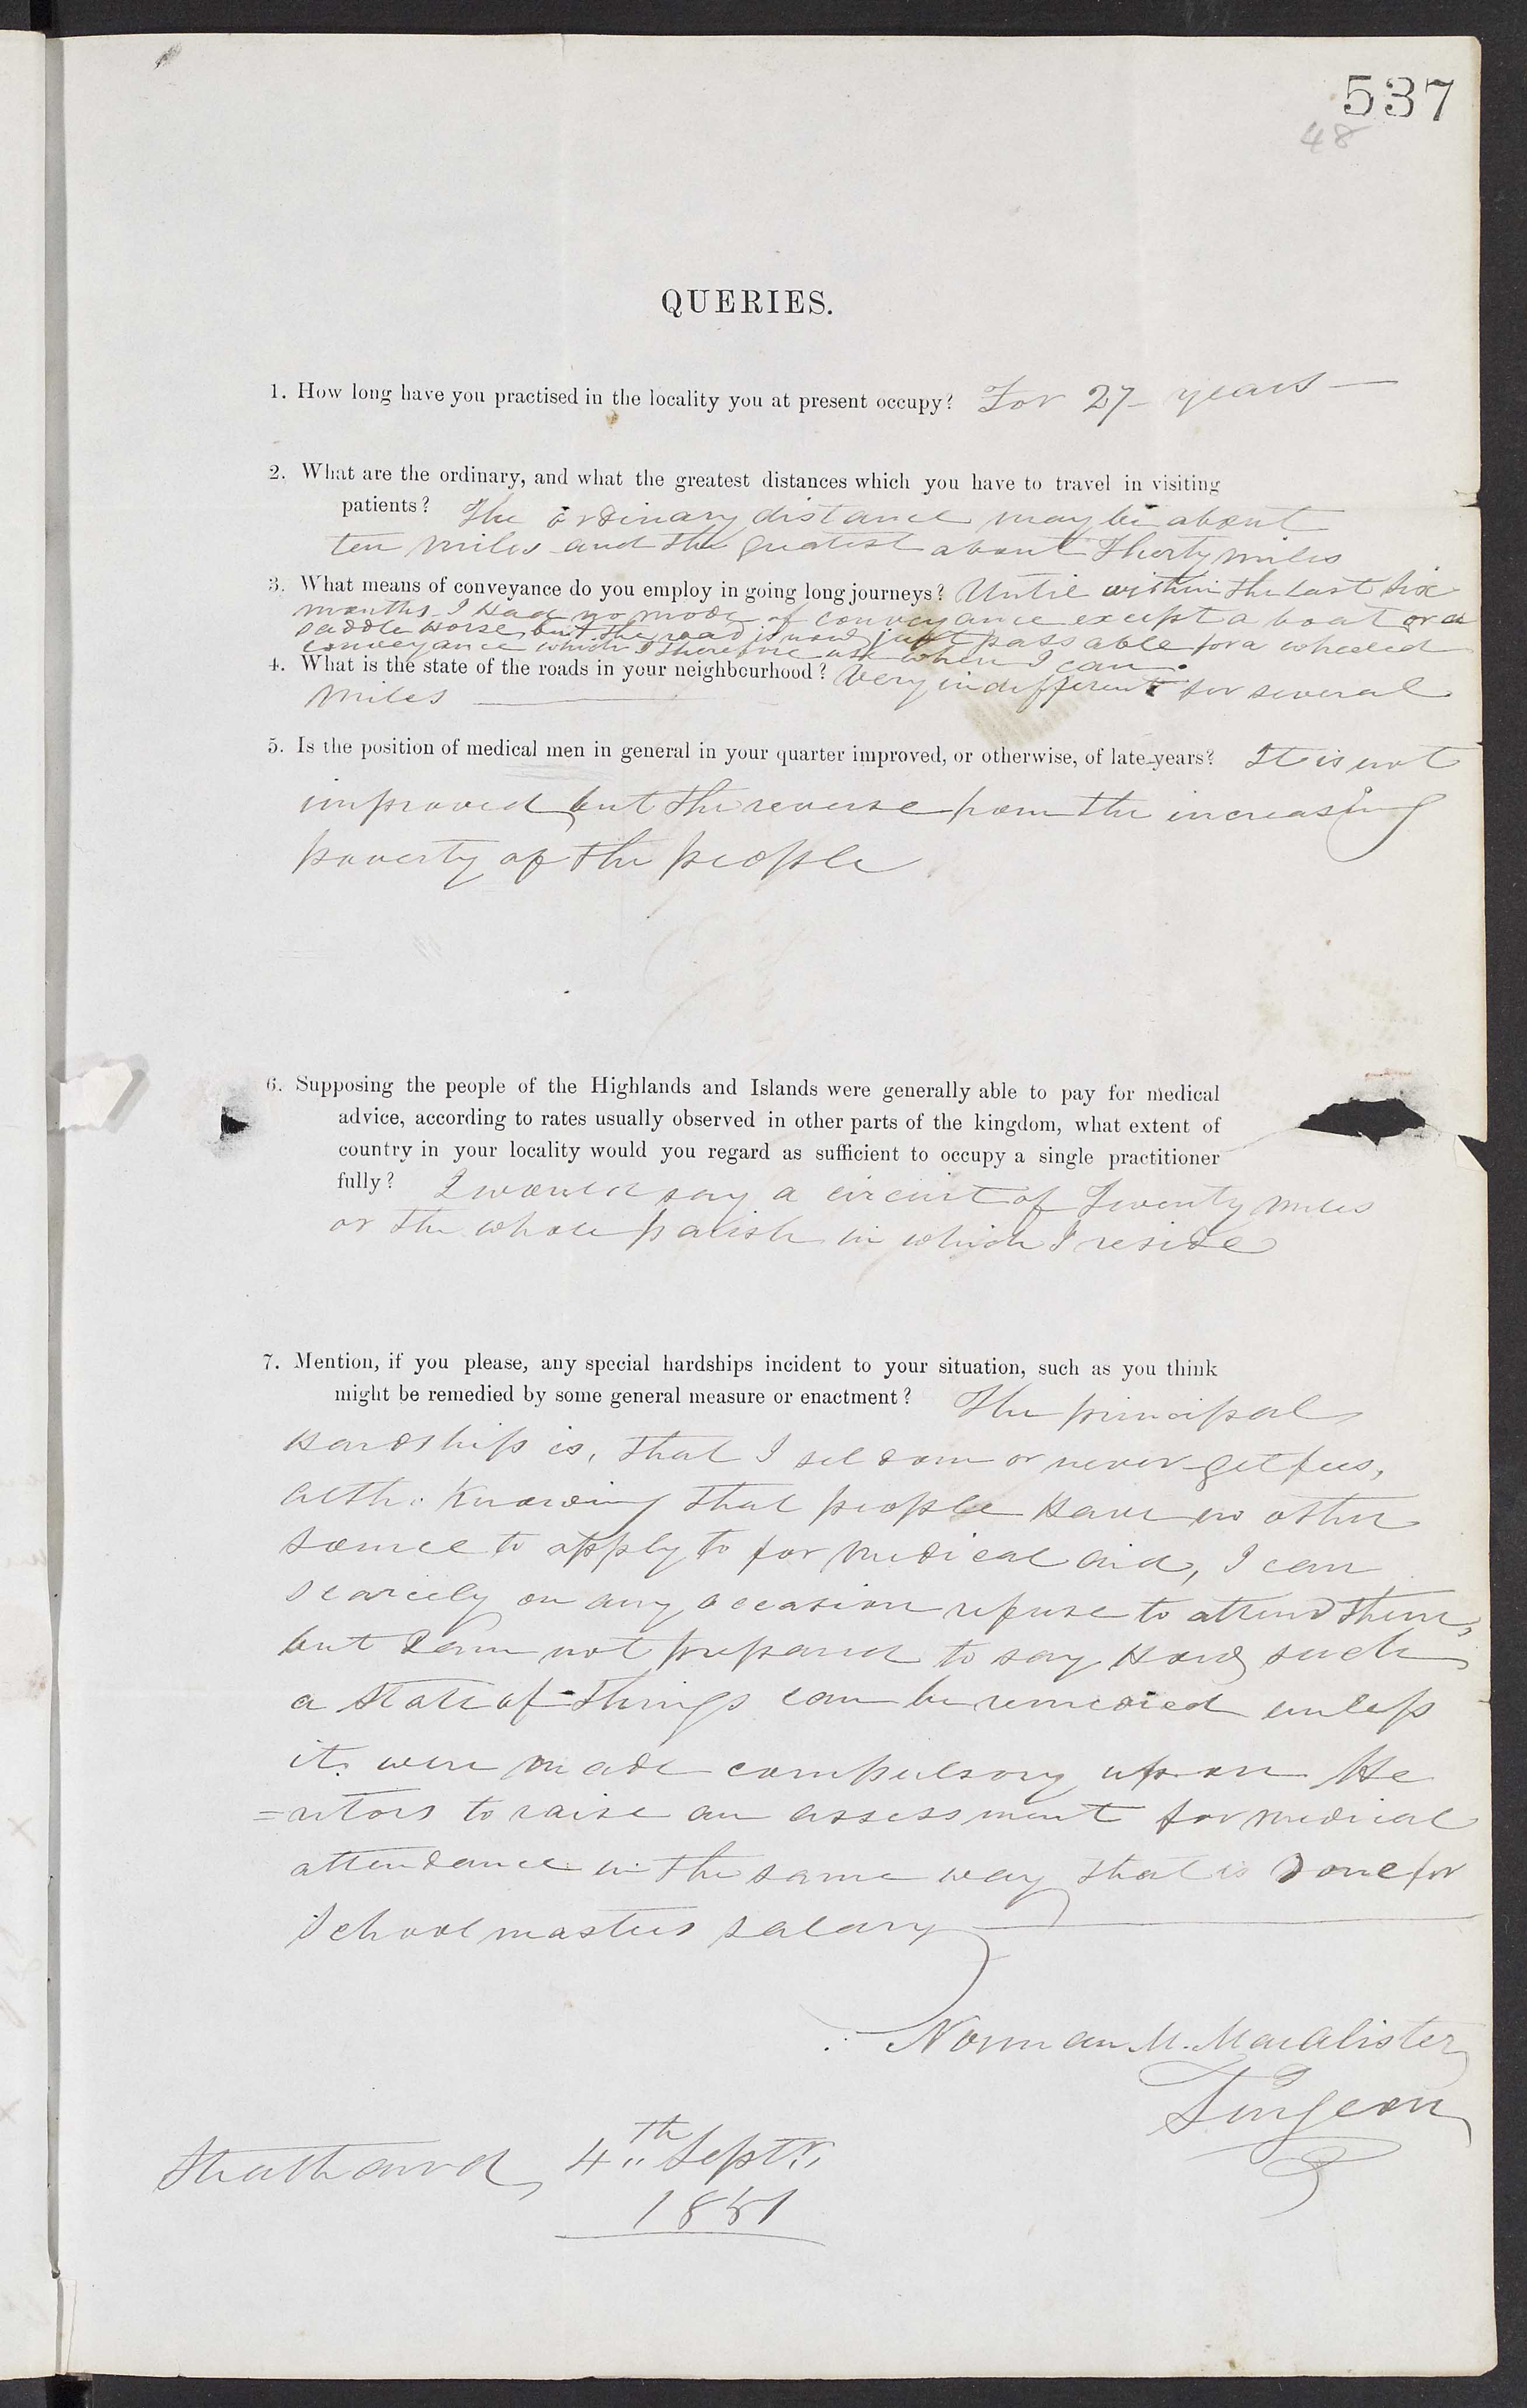 537
48
QUERIES.
1. How long have you practised in the locality you at present occupy? For 27 years —
2. What are the ordinary, and what the greatest distances which you have to travel in visiting
patients? The ordinary distance may be about
ten miles and the greatest about Thirty miles
3. What means of conveyance do you employ in going long journeys? Until within the last six
months I had no mode of conveyance except a boat or a
saddle horse, but the road is now just passable for a wheeled
conveyance which I therefore use when I can.
4. What is the state of the roads in your neighbourhood? Very indifferent for several
miles —
5. Is the position of medical men in general in your quarter improved, or otherwise, of late years? It is not
improved but the reverse from the increasing
poverty of the people
6. Supposing the people of the Highlands and Islands were generally able to pay for medical
advice, according to rates usually observed in other parts of the kingdom, what extent of
country in your locality would you regard as sufficient to occupy a single practitioner
fully? I would say a circuit of Twenty miles
or the whole parish in which I reside
7. Mention, if you please, any special hardships incident to your situation, such as you think
might be remedied by some general measure or enactment? The principal
hardship is, that I seldom or never get fees,
altho: Knowing that people have no other
source to apply to for medical aid, I can
scarcely on any occasion refuse to attend them,
but I am not prepared to say how such
a state of things can be remedied unless
it were made compulsory upon He
=ritors to raise an assessment for medical
attendance in the same way that is done for
Schoolmasters salary —
Norman M. Macalister
Surgeon
Strathaird, 4th Septr.,
1851